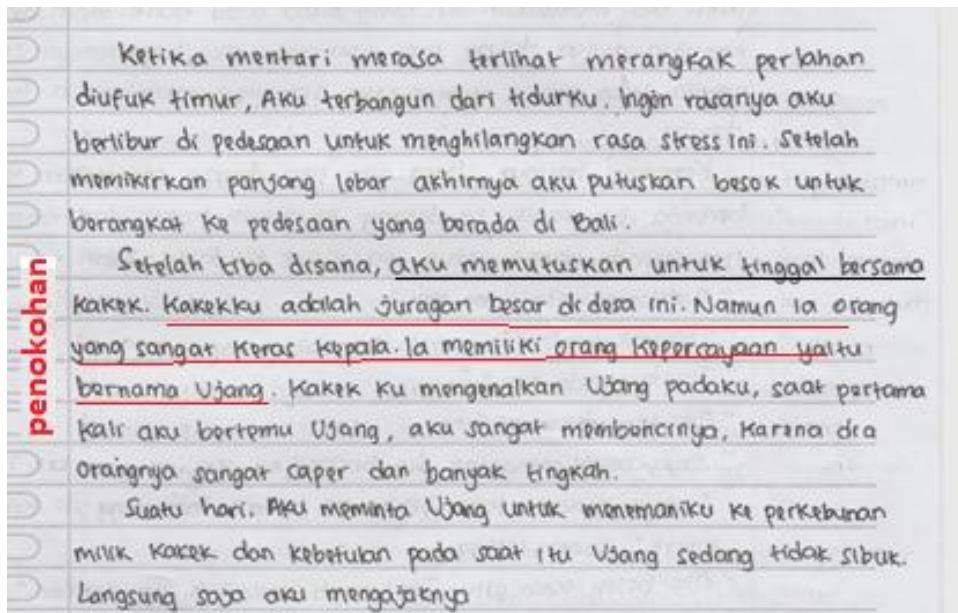 Ketika mentari merasa terlihat merangkak perlahan
diufuk timur, Aku terbangun dari tidurku. Ingin rasanya aku
berlibur di pedesaan untuk menghilangkan rasa stress ini. Setelah
memikirkan panjang lebar akhirnya aku putuskan besok untuk
berangkat ke pedesaan yang berada di Bali.
Setelah tiba disana, aku memutuskan untuk tinggal bersama
kakek. Kakekku adalah juragan besar di desa ini. Namun Ia orang
yang sangat keras kepala. Ia memiliki orang kepercayaan yaitu
bernama Ujang. Kakek ku mengenalkan Ujang padaku, saat pertama
kali aku bertemu Ujang, aku sangat membencinya, karena dia
oraingnya sangat caper dan banyak tingkah.
Suatu hari. Aku meminta Ujang untuk menemaniku ke perkebunan
milik kakek dan kebetulan pada saat itu Ujang sedang tidak sibuk.
Langsung saja aku mengajaknya
penokohan